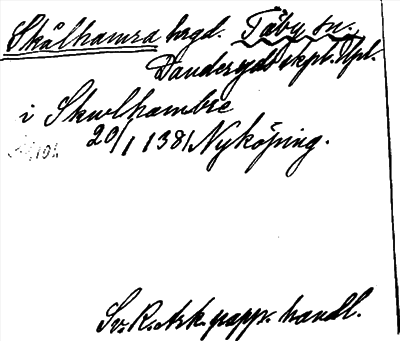 Skålhamra bngd. Täby sn.,
Danderyds skpl. Upl.
i Skulhambre
20/1 1381 Nyköping.
Sv. R. Ark. papp. handl.